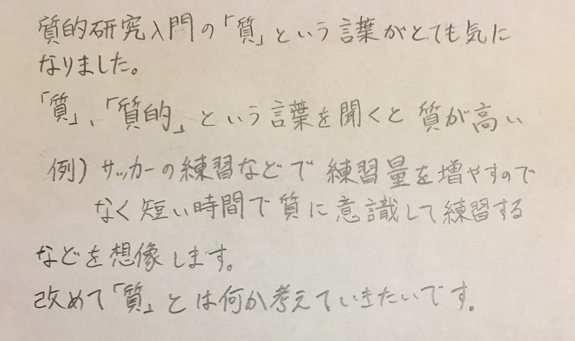 質的研究入門の「質」という言葉がとても気に
なりました。
「質」、「質的」という言葉を聞くと質が高い
例)サッカーの練習などで練習量を増やすので
なく短い時間で質に意識して練習する
などを想像します。
改めて「質」とは何か考えていきたいです。